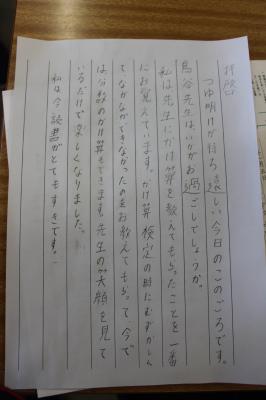 拝啓
つゆ明けが待ち遠しい今日のこのごろです。
鳥谷先生は、いかがお過ごしでしょうか。
私は先生にかけ算を教えてもらったことを一番
にお覚えています。かけ算検定の時にむずかしく
てなかなかできなかったのをお教えてもらって今で
は分数のかけ算もできます。先生の笑顔を見て
いるだけで楽しくなりました。
私は今読書がとてもすきです。